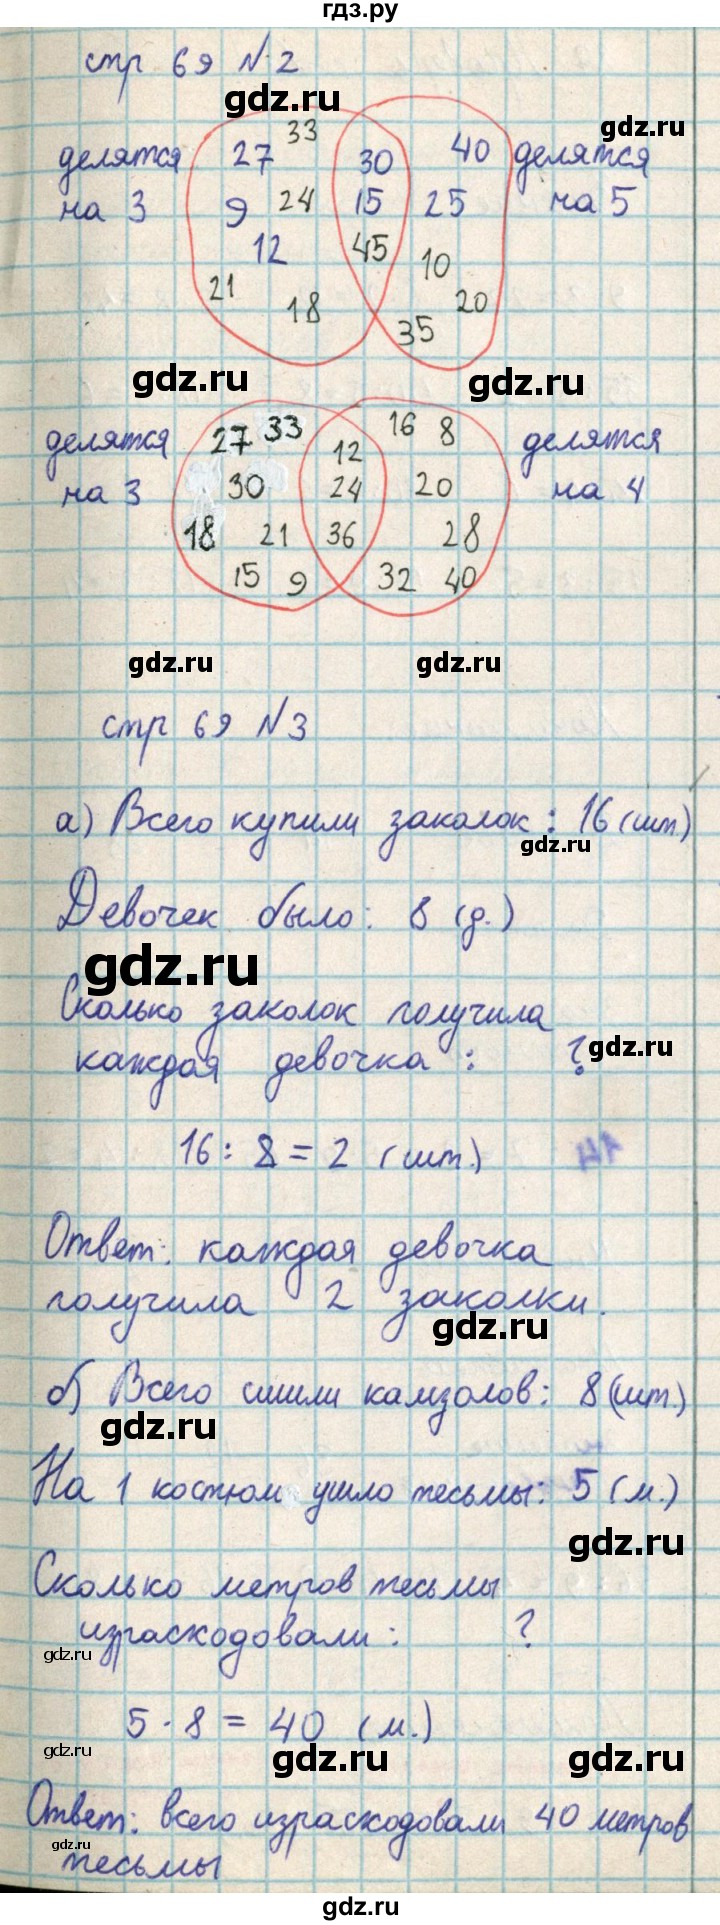 гдз.ру
стр 69 № 2
gdz.ru
gdz.ru
делятся
на 3
27 33
9 24
12
21 18
30
15
45
40
25
10
20
35
делятся
на 5
gdz.ru
gdz.ru
делятся
на 3
27 33
30
18 21
15 9
12
24
36
16 8
20
28
32 40
делятся
на 4
gdz.ru
gdz.ru
стр 69 № 3
а) Всего купили заколок: 16 (шт)
gdz.ru
Девочек было: 8 (д.)
gdz.ru
Сколько заколок получила
каждая девочка: ?
gdz.ru
16 : 8 = 2 (шт.)
14
Ответ: каждая девочка
получила 2 заколки.
gdz.ru
б) Всего сшили камзолов: 8 (шт.)
gdz.ru
На 1 костюм ушло тесьмы: 5 (м.)
gdz.ru
Сколько метров тесьмы
израсходовали: ?
gdz.ru
5 · 8 = 40 (м.)
gdz.ru
gdz.ru
gdz.ru
Ответ: всего израсходовали 40 метров
gdz.ru
тесьмы
gdz.ru